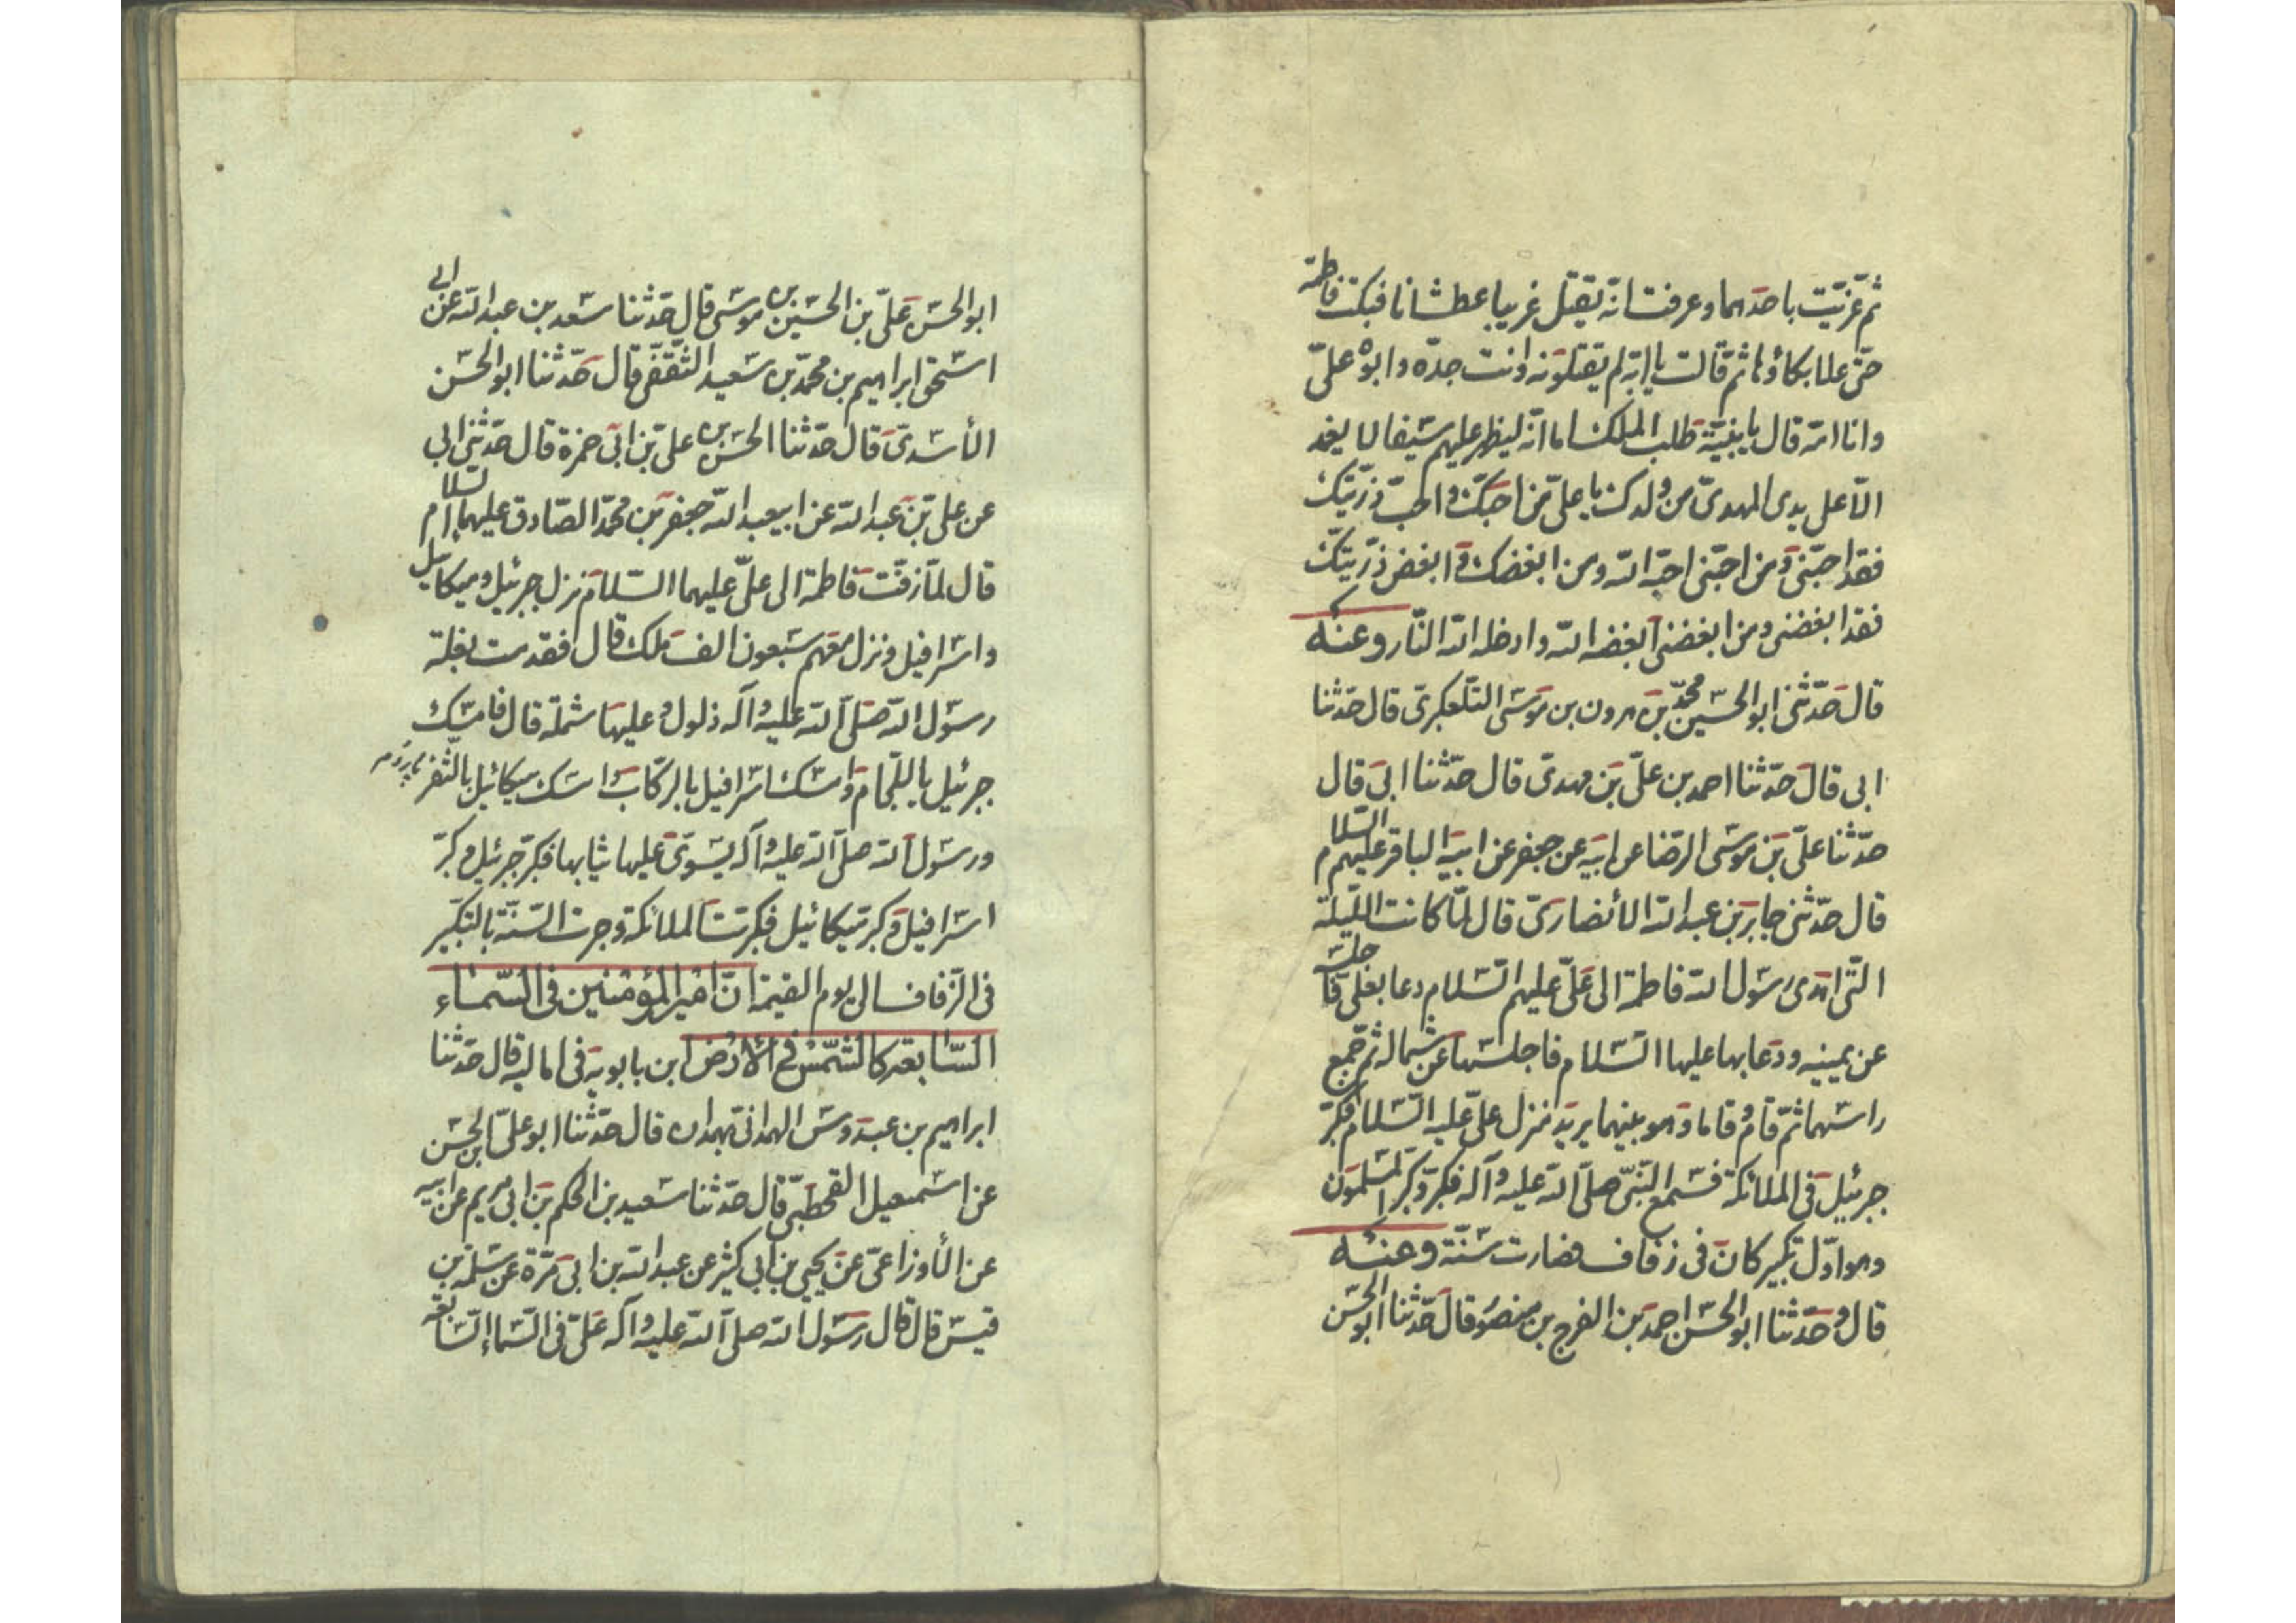 ثم عزيت باحدهما وعرفت انه يقتل غريبا عطشانا فبكت فاطمة
حتى علا بكاؤها ثم قالت يا ابه لم يقتلونه وانت جده وابوه علي
وانا امه قال يا بنية طلب الملك اما انه ليظهر عليهم سيفا لا يغمد
الا على يدى المهدى من ولدك يا على من احبك واحب ذريتك
فقد احبنى ومن احبنى احبه الله ومن ابغضك وابغض ذريتك
فقد ابغضنى ومن ابغضنى ابغضه الله وادخله الله النار وعنه
قال حدثنى ابو الحسين محمد بن هرون بن موسى التلعكبرى قال حدثنا
ابى قال حدثنا احمد بن على بن مهدى قال حدثنا ابى قال
حدثنا على بن موسى الرضا عن ابيه عن جعفر عن ابيه الباقر عليهم السلام
قال حدثنى جابر بن عبد الله الأنصارى قال لما كانت الليلة
التى اهدى رسول الله فاطمة الى على عليهم السلام دعا بعلى فاجلسه
عن يمينه ودعا بها عليها السلام فاجلسها عن شماله ثم جمع
راسهما ثم قام وقاما وهو بينهما يريد منزل على عليه السلام فكبر
جبرئيل فى الملائكة فسمع النبى صلى الله عليه وآله فكبر وكبر المسلمون
وهو اول تكبير كان فى زفاف فصارت سنة وعنه
قال وحدثنا ابو الحسن احمد بن الفرج بن منصور قال حدثنا ابو الحسن
ابو الحسن على بن الحسين بن موسى قال حدثنا سعد بن عبد الله عن ابى
اسحق ابراهيم بن محمد بن سعيد الثقفى قال حدثنا ابو الحسن
الأسدى قال حدثنا الحسن بن على بن ابى حمزة قال حدثنى ابى
عن على بن عبد الله عن ابيعبد الله جعفر بن محمد الصادق عليهما السلام
قال لما زفت فاطمة الى على عليهما السلام نزل جبرئيل وميكائيل
واسرافيل ونزل معهم سبعون الف ملك قال فقدمت بغلة
رسول الله صلى الله عليه وآله ذلول وعليها شملة قال فامسك
جبرئيل باللجام وامسك اسرافيل بالركاب وامسك ميكائيل بالثفر
ورسول الله صلى الله عليه وآله يسوى عليها ثيابها فكبر جبرئيل وكبر
اسرافيل وكبر ميكائيل فكبرت الملائكة وجرت السنة بالتكبير
فى الزفاف الى يوم القيمة ان امير المؤمنين فى السماء
السابعة كالشمس فى الارض ابن بابويه فى اماليه قال حدثنا
ابراهيم بن عبدوس الهمدانى بهمدان قال حدثنا ابو على الحسن بن
عن اسمعيل القحطبى قال حدثنا سعيد بن الحكم بن ابى مريم عن ابيه
عن الأوزاعى عن يحيى بن ابى كثير عن عبد الله بن ابى مرة عن سلمة بن
قيس قال قال رسول الله صلى الله عليه وآله على فى السماء السابعة